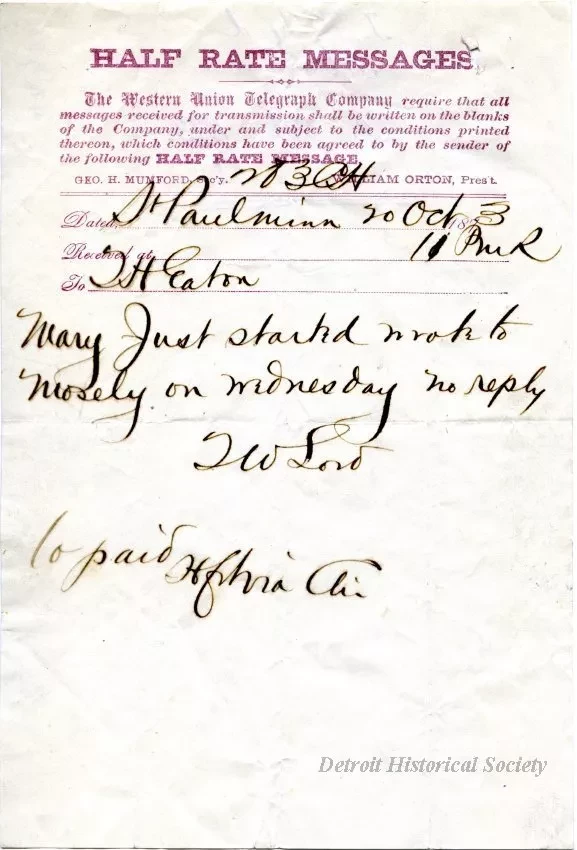 HALF RATE MESSAGES
The Western Union Telegraph Company require that all
messages received for transmission shall be written on the blanks
of the Company, under and subject to the conditions printed
thereon, which conditions have been agreed to by the sender of
the following HALF RATE MESSAGE.
GEO. H. MUMFORD, Sec'y. WILLIAM ORTON, Pres't.
Dated, St Paul minn 20 Oct 1873
Received at 11
To T H Eaton
Mary Just started wrote to
Mosely on wednesday no reply
T W Lord
10 paid via Chi
Detroit Historical Society